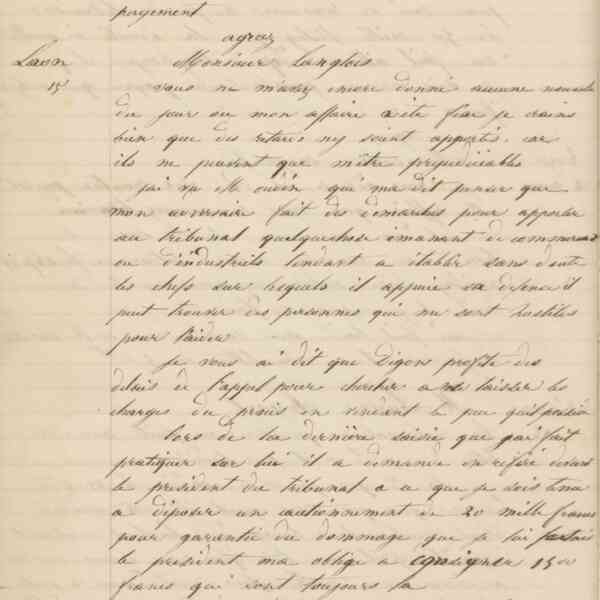 payement
agréez
Laon Monsieur Langlois
15 vous ne m'avez encore donné aucune nouvelle
du jour ou mon affaire a été fixé je crains
bien que des retards n'y soient apportés, car
ils ne peuvent que m'être prejudiciables
j'ai vu M oudin qui ma dit penser que
mon aversaire fait des démarches pour apporter
au tribunal quelquechose émanant de commercants
ou d'industriels tendant a établir sans doute
les chefs sur lesquels il appuie sa defense il
peut trouver des personnes qui me sont hostiles
pour l'aider
Je vous ai dit que Digon profite des
délais de l'appel pour chercher a me laisser les
charges du procès en vendant le peu qu'il possède
lors de la dernière saisie que j'ai fait
pratiquer sur lui il a demandé en référé devant
le président du tribunal a ce que je sois tenu
a déposer un cautionnement de 20 mille francs
pour garantie du dommage que je lui faisais
le président ma obligé a consigner 1500
francs qui sont toujours la